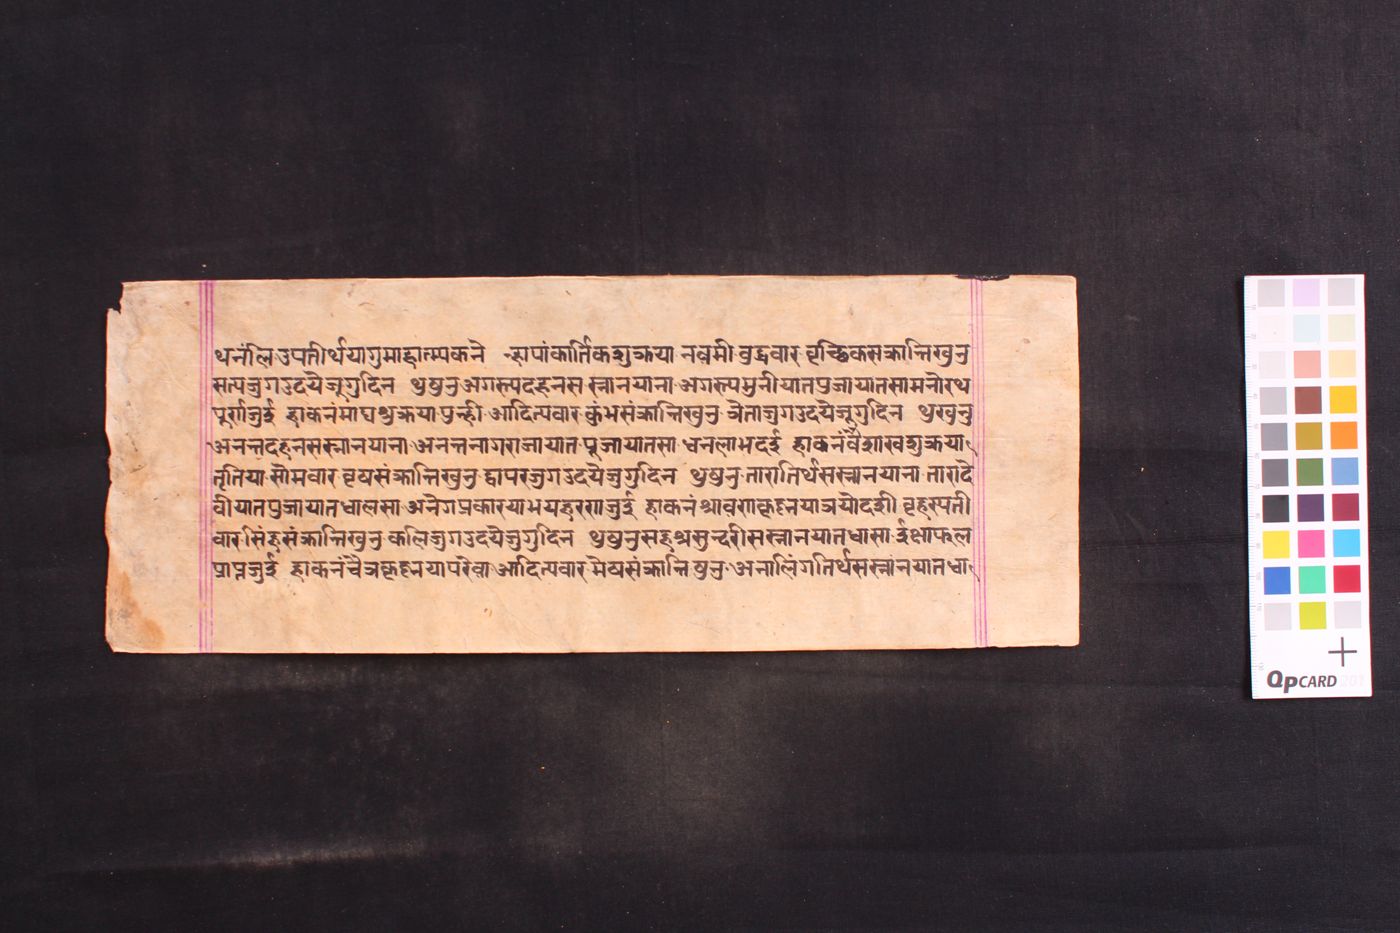 थनंलि उपतीर्थयागुमाहात्म्पकने न्हापांकार्तिकशुक्लया नवमी बुद्धवार वृच्छिकसंक्रान्तिखुनु
सत्पजुगउदयैजूगुदिन थुषुनु अगस्त्पदहनस स्नानयाना अगस्त्पमुनीयातपुजायातसा मनोरथ
पूर्णजुई हाकनंमाघशुक्लयापुन्ही आदित्पवार कुंभसंक्रान्तिखुनु त्रेताजुगउदयैजूगुदिन थुखुनु
अनन्तदहनसस्नानयाना अनन्तनागराजायात पूजायातसा धनलाभदई हाकनंवैशाखशुक्लया
तृतिया सोमवार वृषसंक्रान्तिखुनु द्वापरजुगउदयैजुगुदिन थुषुनु तारातिर्थसस्नानयाना तारादे
वीयातपुजायातधालसा अनेगप्रकारयाभयहरणजुई हाकनं श्रावणकृष्नयात्रयोदशी वृहस्पती
वारसिंहसंक्रान्तिखुनु कलिजुगउदयैजुगुदिन थुषुनुसहश्रसुन्दरीसस्नानयातधासा ईक्षाफल
प्राप्नजुई हाकनंचैत्रकृष्नयापरेवा आदित्पवार मेषसंक्रान्ति षुनु अनालिंगतिर्थसस्नांनयातधा
QPCARD 201